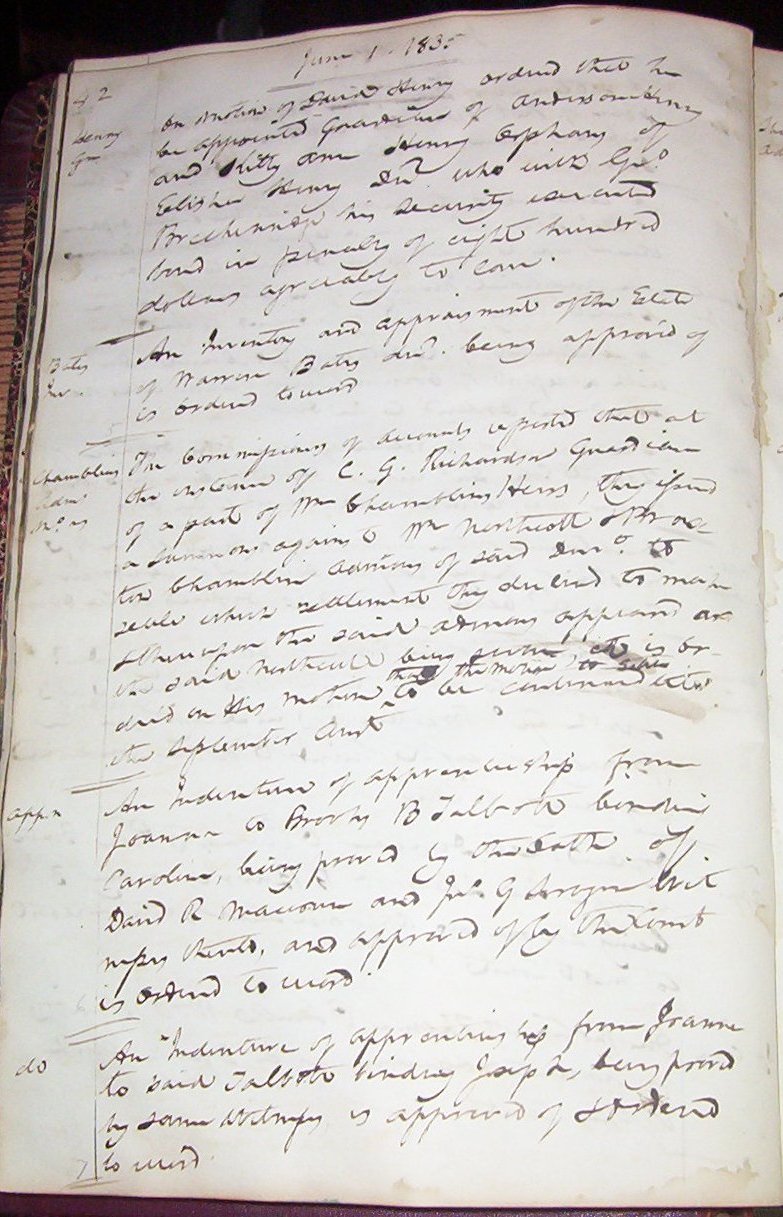 June 1. 1835
42
Henny
Gn
On motion of David Henry ordered that he
be appointed Guardian of Anderson Henry
and Kitty Ann Henry Orphans of
Elisha Henry Decd who with Geo
Breckinridge his security executed
bond in penalty of eight hundred
dollars agreeably to law.
Bates
Inv.
An Inventory and appraisment of the Estate
of Warren Bates decd. being approved of
is ordered to record
Chamblins
Adms
The Commissioners of accounts reported that at
the instance of C. G. Richardson Guardian
of a part of Wm Chamblins Heirs they issued
a summons against Wm Northcott & Broc-
ton Chamblin admors of said Decd. to
settle which settlement they declined to make
& thereupon the said admors appeared &
the said Northcutt being sworn it is or-
derd on His motion that the motion to settle
to be continued till
the September Court
app.n
An Indenture of apprenticeship from
Joanna to Brooks B Talbott binding
Caroline, being proved by the oath of
David R and Jno. G Scrogin Wit
nesses thereto, and approved of by the Court
is ordered to record.
do
An Indenture of apprenticeship from Joanna
to said Talbott binding Joseph, being proved
by same Witnesses is approved of & ordered
to record.